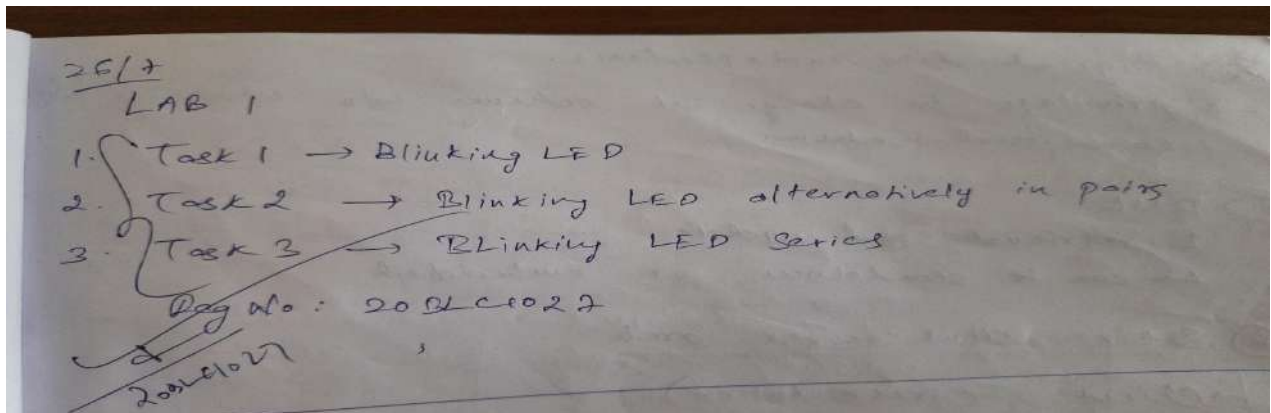 26/7
LAB 1
1. Task 1 → Blinking LED
2. Task 2 → Blinking LED alternatively in pairs
3. Task 3 → BLinking LED Series
Reg No : 20BLC1027
20BLC1027